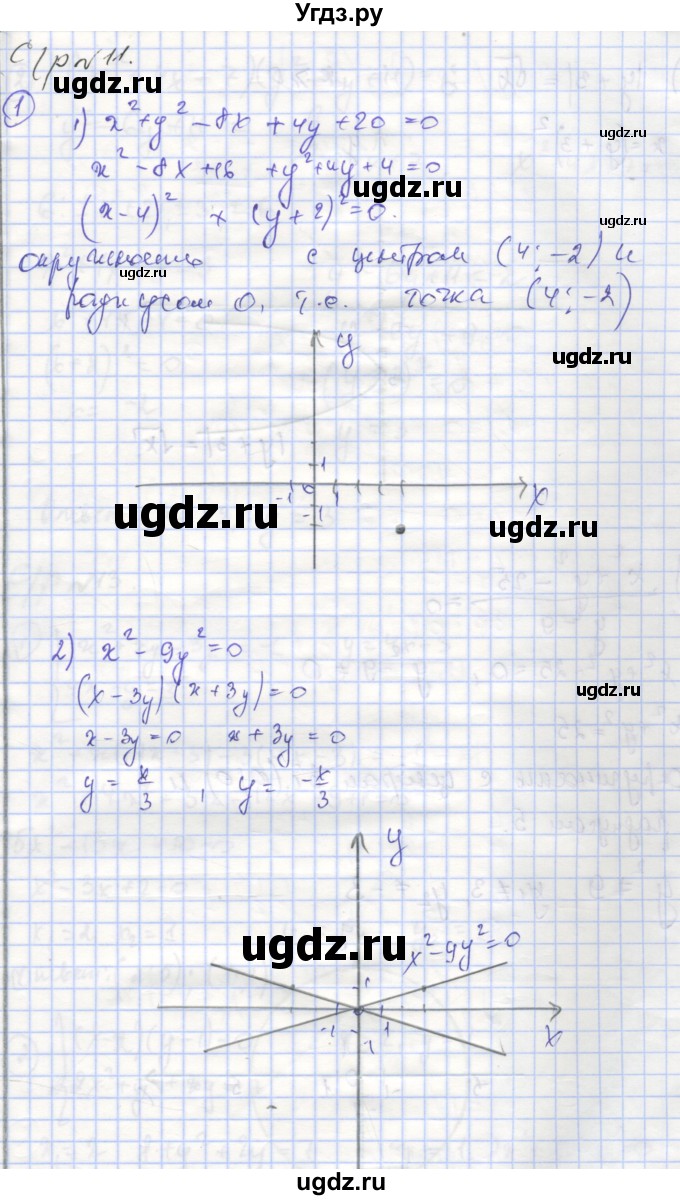 Угдз.ру
С/р №11.
ugdz.ru
1
1) x² + y² - 8x + 4y + 20 = 0
ugdz.ru
x² - 8x + 16 + y² + 4y + 4 = 0
ugdz.ru
(x - 4)² + (y + 2)² = 0.
окружность с центром (4; -2) и
радиусом 0, т.е. точка (4; -2)
ugdz.ru
y
1
-1 0 1 x
-1
ugdz.ru
ugdz.ru
2) x² - 9y² = 0
(x - 3y)(x + 3y) = 0
ugdz.ru
x - 3y = 0 x + 3y = 0
y = x/3, y = -x/3
y
ugdz.ru
x² - 9y² = 0
1
-1 0 1 x
-1
ugdz.ru
ugdz.ru